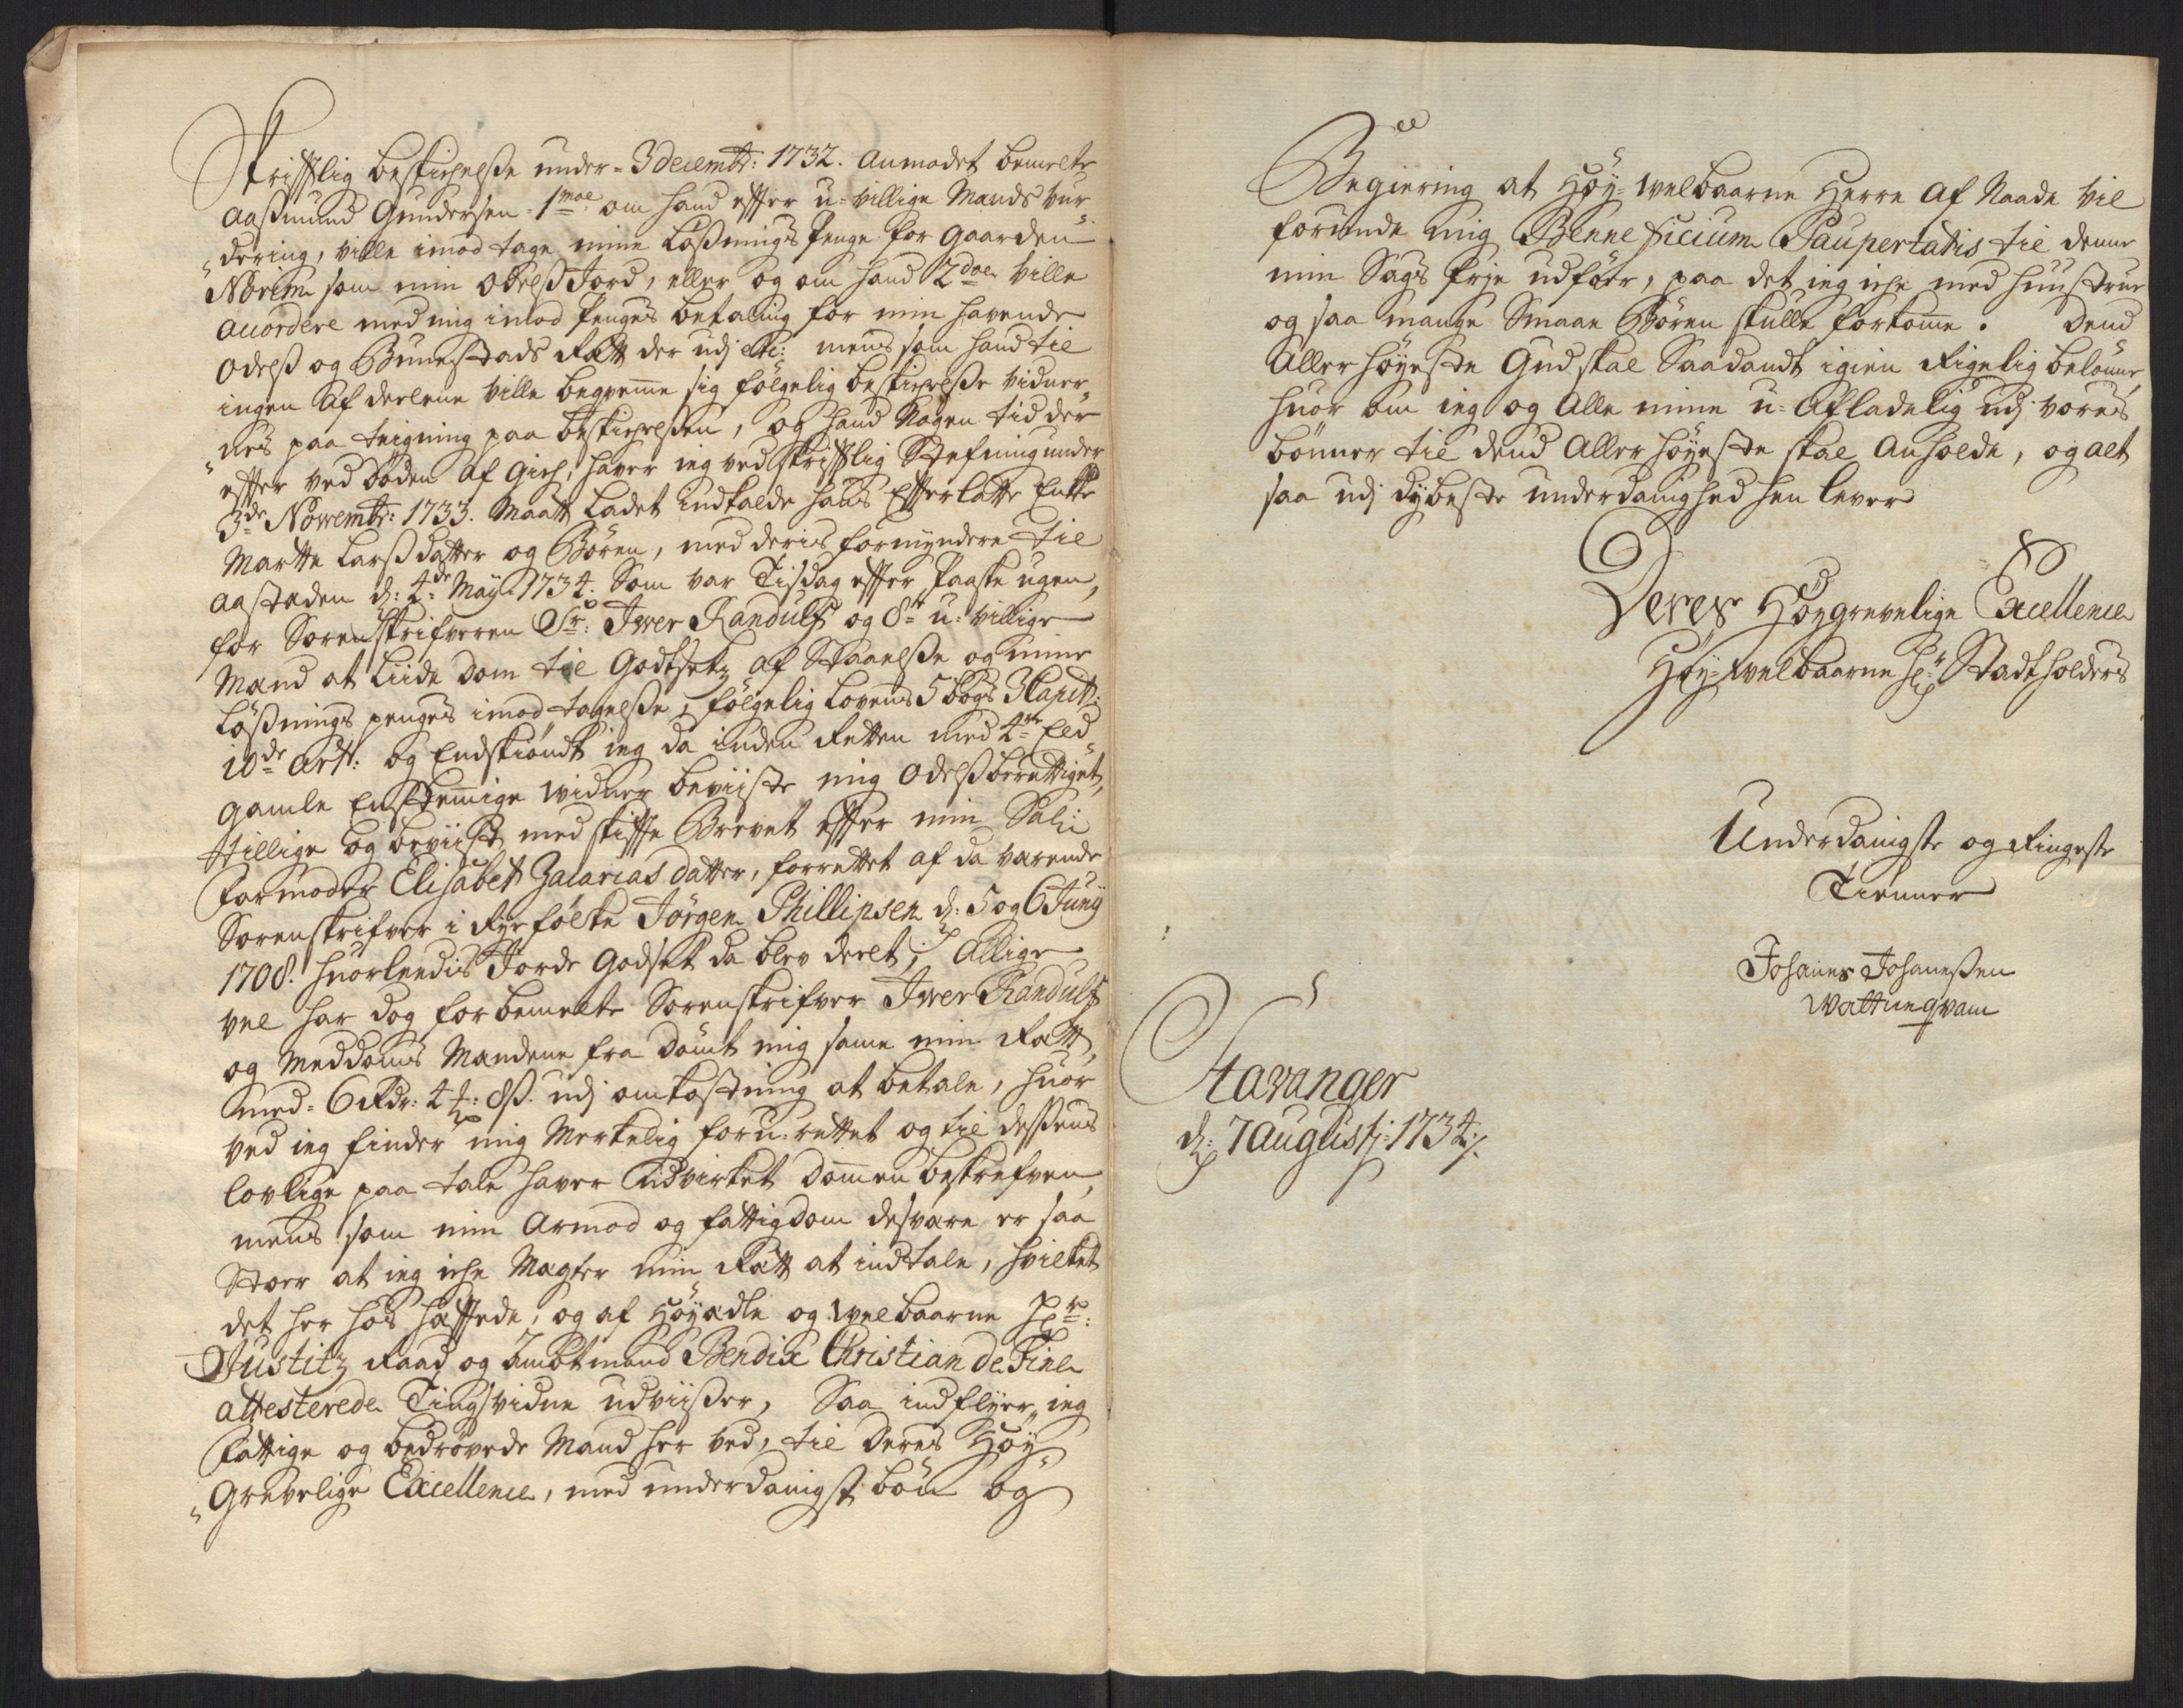 Skrifftlig beskichelsse under- 3 Decembr: 1732. anmodet bemelte
Aassmund Gundersen- 1moe: om hand effter u-villige Mands vur-
dering, ville imod tage mine Lössnings Penge for gaarden
Norem som min Odelss Jord, eller og om hand 2doe ville
accordere med mig imod Penges betaling for min havende
Odelss og Bunestads Rætt der udj etc: mens som hand til
ingen af deelene ville beqvemme sig fölgelig beskichelsse vidner-
nes paa teigning paa beskichelssen, og hand Nogen tid der
effter ved Döden af gich, haver ieg ved skrifftlig Stefning under
3de Novembr: 1733. Maatt Ladet indkalde hans Effterlatte Encke
Martte Larssdatter og Bören, med deris formyndere til
aastæden d: 4de May 1734. Som var Tisdag effter Paaske ugen,
for Sorenskrifveren Sr: Iver Randulf og 8te u-villige
Mænd at Liide dom til godtsetz af Staaelsse og mine
Lössnings penges imod tagelsse, fölgelig Lovens 5 bogs 3 Capit:
10de Art: og Endskiöndt ieg da inden Retten med 4re Eld-
gamle Enstemmige vidner beviiste mig Odelssberettiget,
tillige og beviist med skiffte Brevet effter min Sali:
Farmoder Elisabet Zacarias datter, forrettet af da værende
Sorenskrifver i Ryefölcke Jörgen Phillipsen d: 5 og 6 Juny
1708. huorleedis Jorde godset da blev deelt; Allige
vel har dog forbemelte Sorenskrifver Iver Randulf
og Meddoms Mændene fra dömt mig samme min Rætt,
med- 6 Rdr: 4 ₰: 8 ss. udj omkostning at betale, huor
ved ieg finder mig Merkelig foru-rettet og til dessens
lovlige paa tale haver Udvirket dommen beskrefven,
mens som min Armod og fattigdom desværre er saa
Stoer at ieg iche Magter min Rætt at indtale, hvilket
det her hos hæfftede, og af Höyædle og Velbaarne Hr:
Justitz Raad og Ambtmand Bendix Christian de Fine
attesterede Tingsvidne udviisser, Saa indflyer ieg
Fattige og bedrövede Mand her ved, til Deres Höy-
Grevelige Excellence, med underdanigst bön og
Begiering at Höy-Welbaarne Herre Af Naade vil
forunde mig Bennefficium Paupertatis til denne
min Sags frie udfört, paa det ieg iche med huustrue
og saa mange Smaae Bören skulle forkomme. Dend
Allerhöyeste Gud skal Saadandt igien Rigelig belönne,
huor om ieg og Alle mine u-Afladelig udj vores
bönner til dend Allerhöyeste skal Anholde, og alt
saa udj dybeste underdanighed hen lever
Deres Höygrevelige Excellence
Höy-Velbaarne Hr: Stadtholders
Underdanigste og Ringeste
Tienner
Johannes Johanessen
Wattneqvam
Stavanger
d: 7 Augusti: 1734 ./.